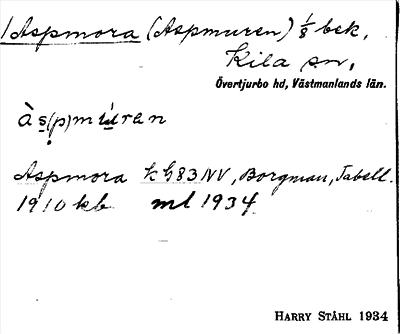 Aspmora (Aspmuren) 1/8 bek.
Kila sn,
Övertjurbo hd, Västmanlands län.
às(p)mu̇ran
Aspmora k G 83 NV, Borgman, Tabell.
1910 kb ml 1934
HARRY STÅHL 1934